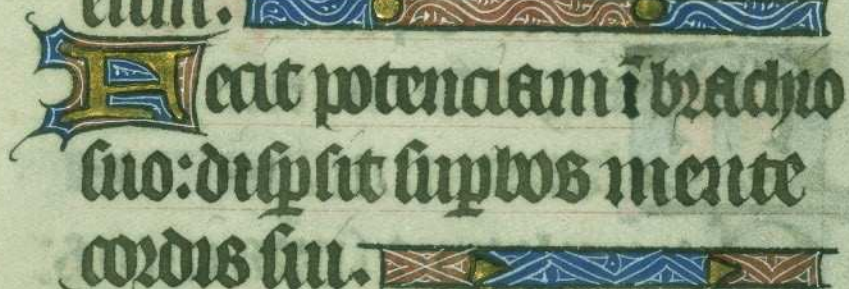 eum.
Fecit potenciam ī brachio
suo: disp̱sit sup̱bos mente
cordis sui.